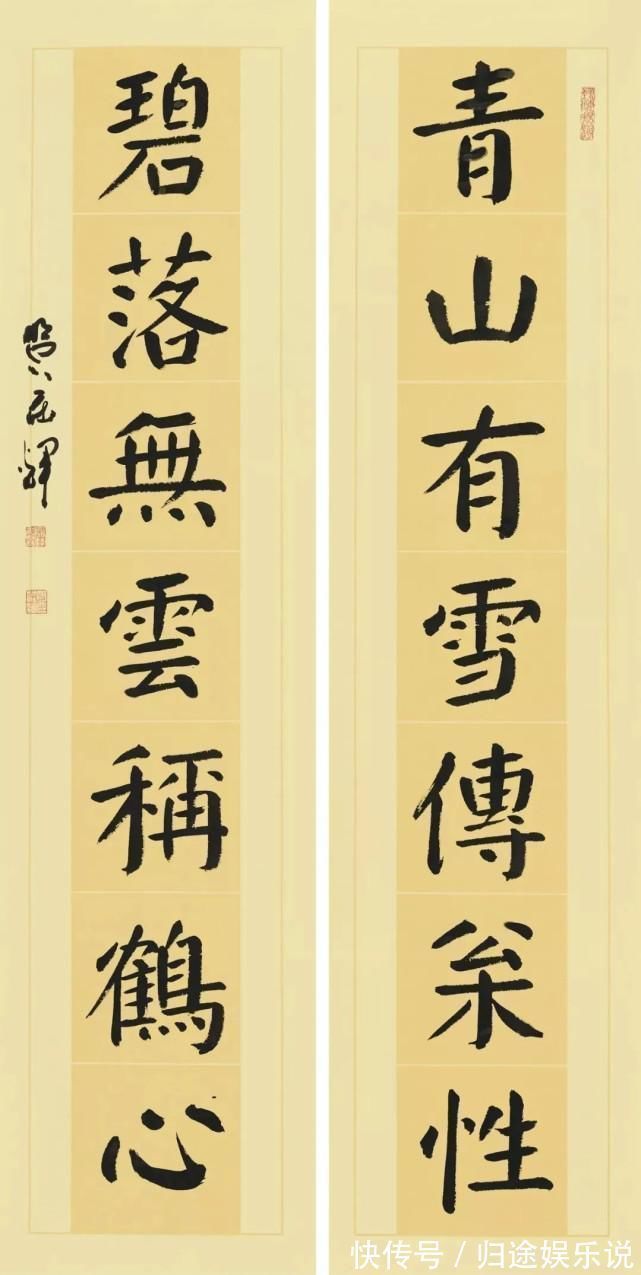 青山有雪傳枀性
碧落無雲稱鶴心
快传号 / 归途娱乐说